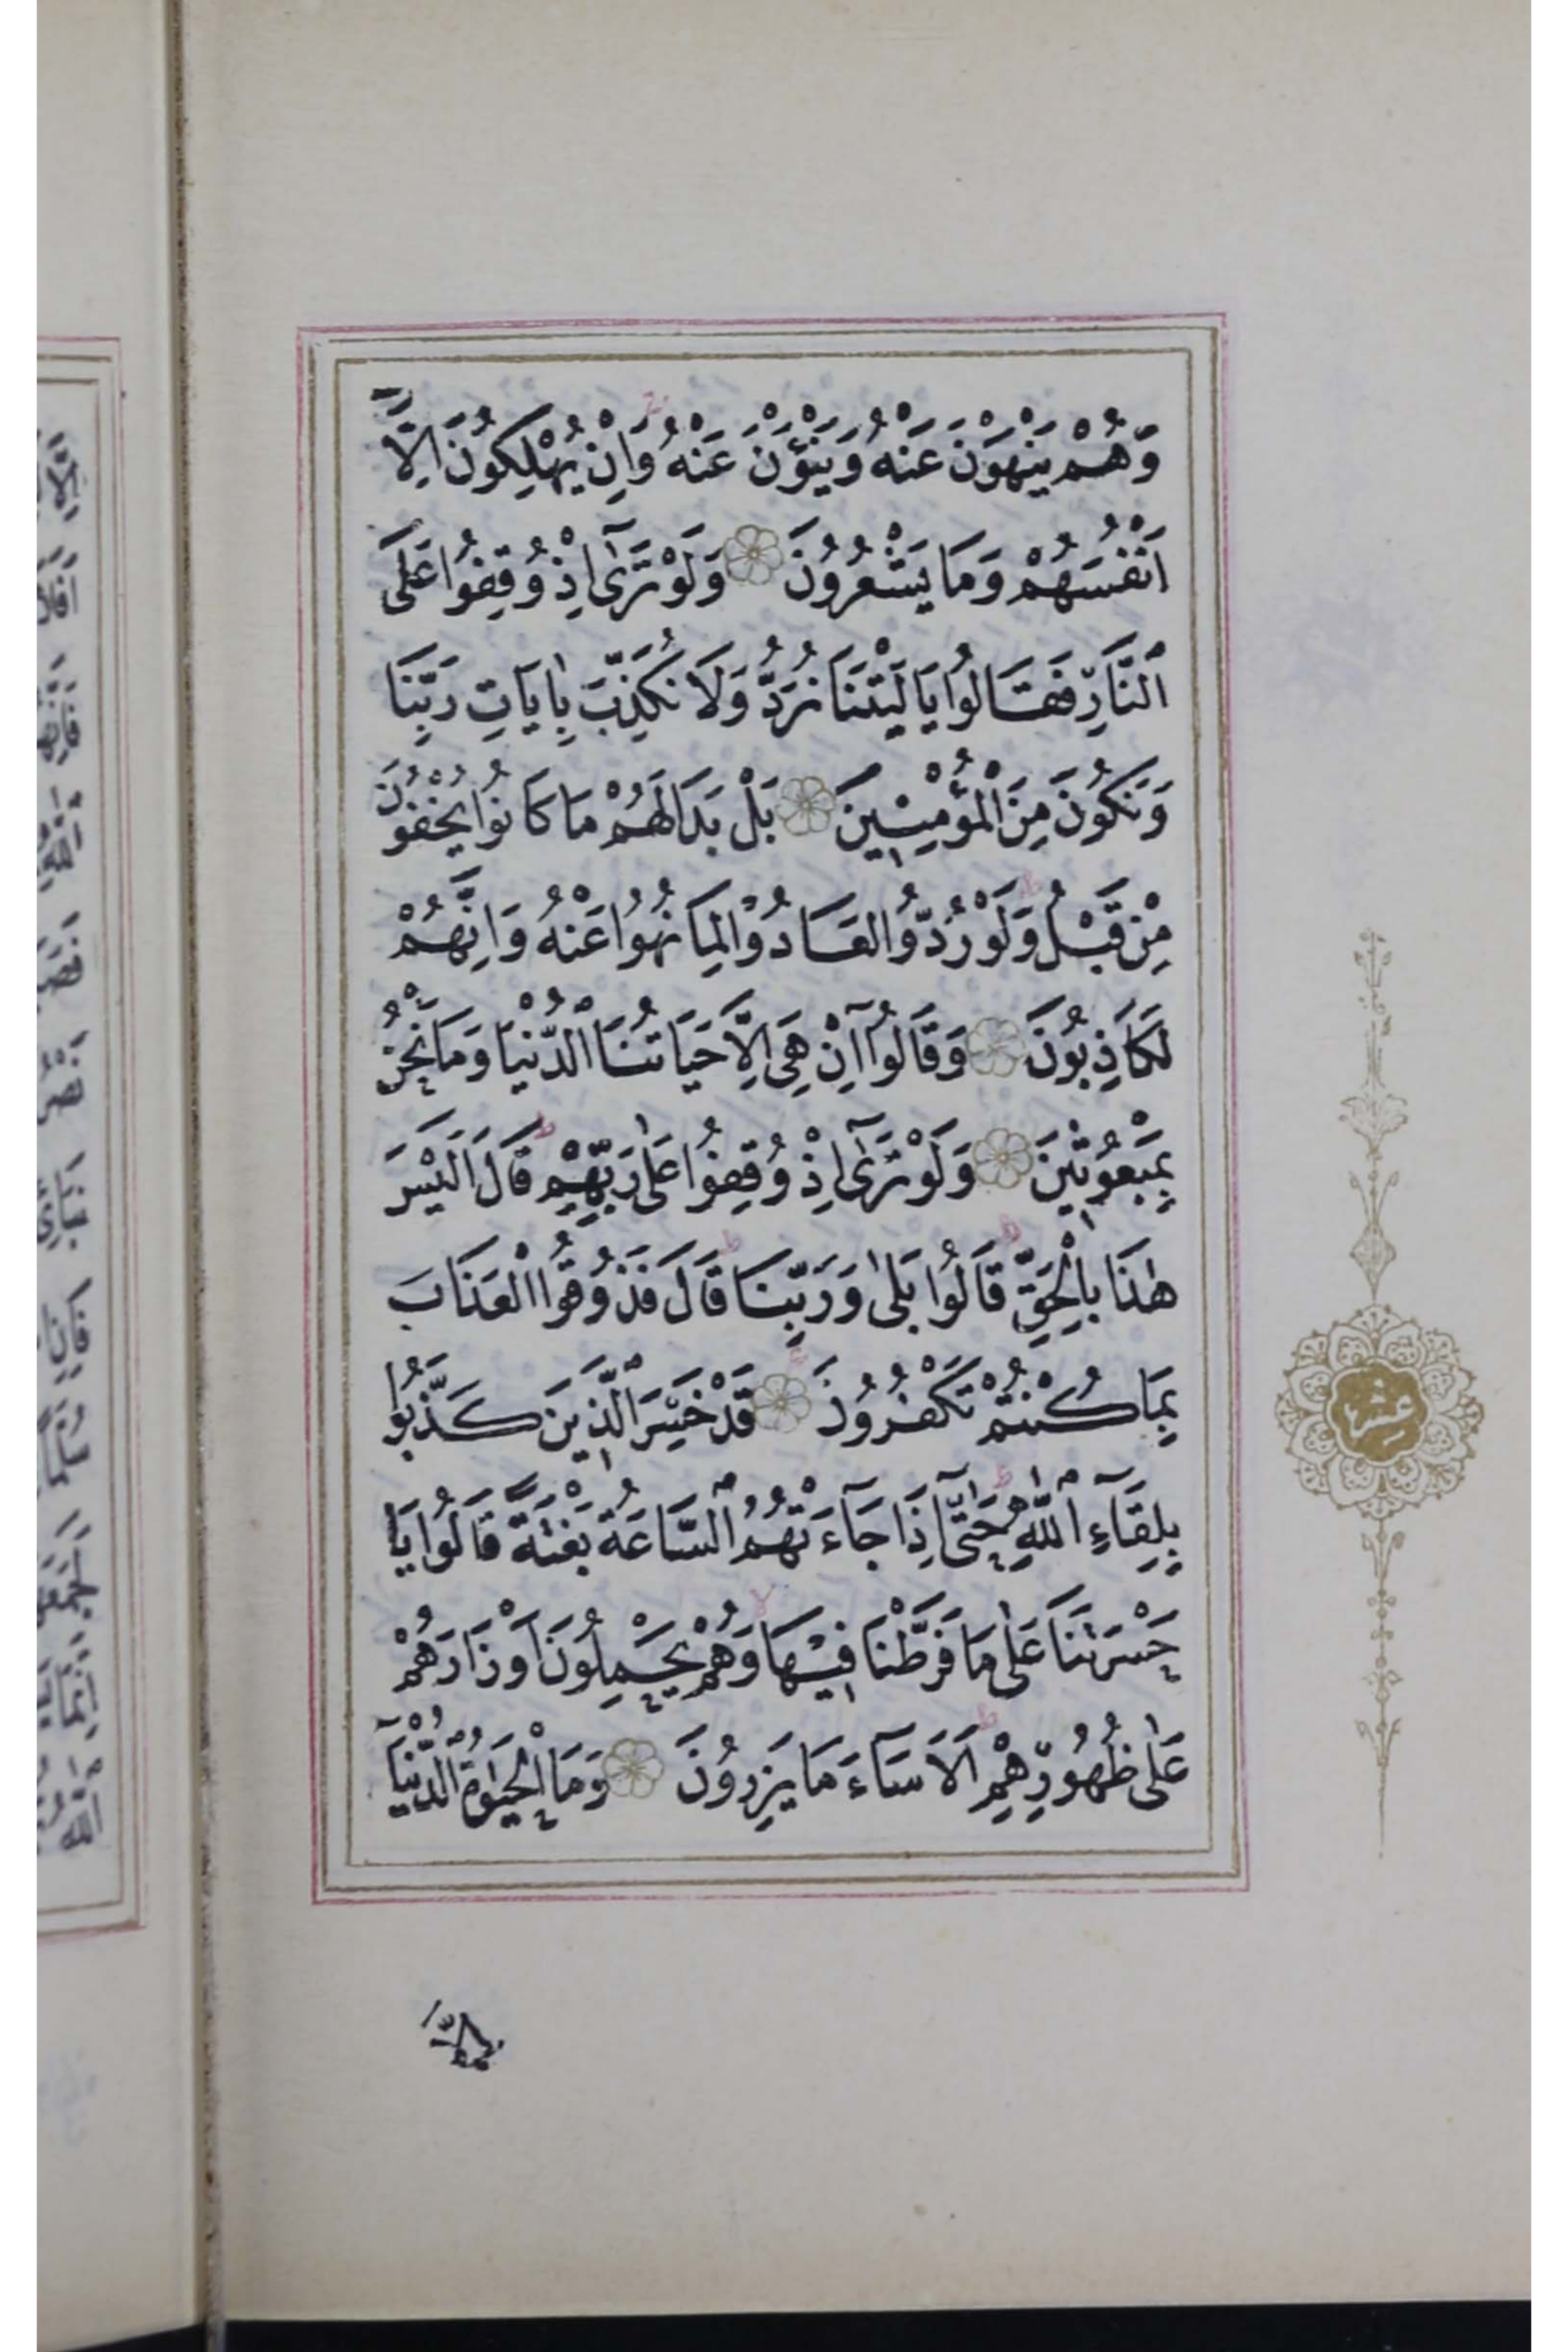 وَهُمْ يَنْهَوْنَ عَنْهُ وَيَنْؤَنَ عَنْهُ وَاِنْ يُهْلِكُونَ اِلَّٓا
اَنْفُسَهُمْ وَمَا يَشْعُرُونَ وَلَوْ تَرٰٓى اِذْ وُقِفُوا عَلَى
ٱلنَّارِ فَقَالُوا يَا لَيْتَنَا نُرَدُّ وَلَا نُكَذِّبَ بِاٰيَاتِ رَبِّنَا
وَنَكُونَ مِنَ ٱلْمُؤْمِنِينَ بَلْ بَدَا لَهُمْ مَا كَانُوا يُخْفُونَ
مِنْ قَبْلُ وَلَوْ رُدُّوا لَعَادُوا لِمَا نُهُوا عَنْهُ وَاِنَّهُمْ
لَكَاذِبُونَ وَقَالُٓوا اِنْ هِىَ اِلَّا حَيَاتُنَا ٱلدُّنْيَا وَمَا نَحْنُ
بِمَبْعُوثِينَ وَلَوْ تَرٰٓى اِذْ وُقِفُوا عَلٰى رَبِّهِمْ قَالَ اَلَيْسَ
هٰذَا بِالْحَقِّ قَالُوا بَلٰى وَرَبِّنَا قَالَ فَذُوقُوا ٱلْعَذَابَ
بِمَا كُنْتُمْ تَكْفُرُونَ قَدْ خَسِرَ ٱلَّذِينَ كَذَّبُوا
بِلِقَٓاءِ ٱللّٰهِ حَتّٰٓى اِذَا جَٓاءَتْهُمُ ٱلسَّاعَةُ بَغْتَةً قَالُوا يَا
حَسْرَتَنَا عَلٰى مَا فَرَّطْنَا فِيهَا وَهُمْ يَحْمِلُونَ اَوْزَارَهُمْ
عَلٰى ظُهُورِهِمْ اَلَا سَٓاءَ مَا يَزِرُونَ وَمَا ٱلْحَيٰوةُ ٱلدُّنْيَٓا
عشر
اِلَّا